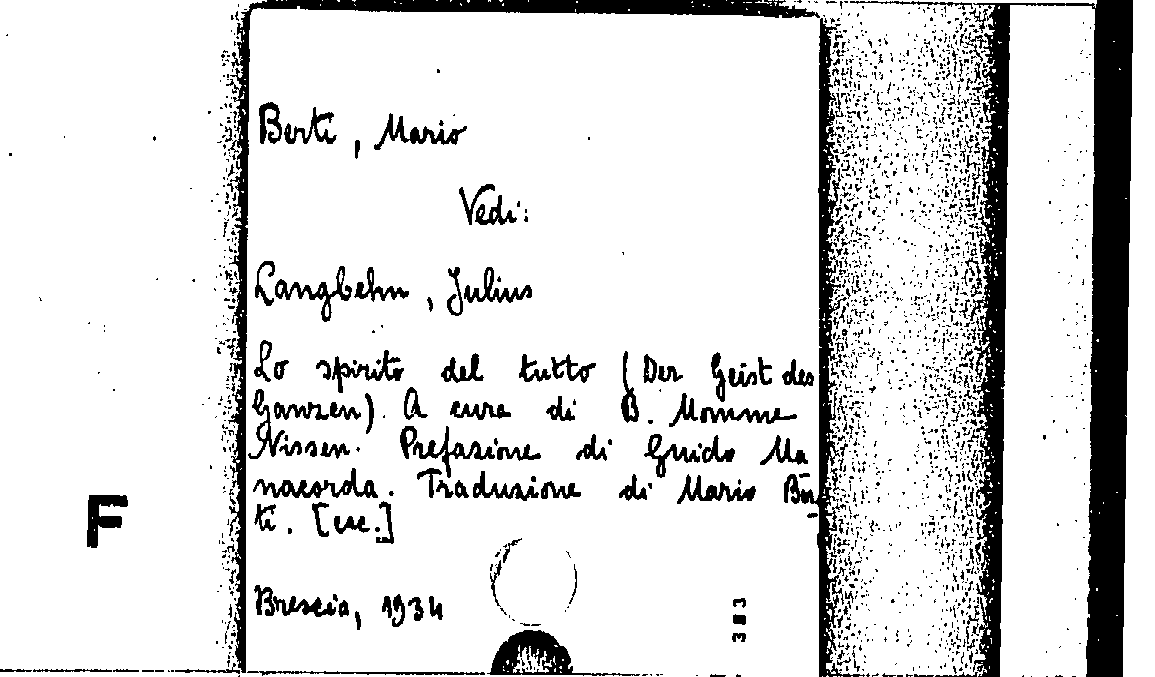 Berti, Mario
Vedi:
Langbehn, Julius
Lo spirito del tutto (Der Geist des
Ganzen). A cura di B. Momme
Nissen. Prefazione di Guido Ma
nacorda. Traduzione di Mario Ber-
ti. [ecc.]
F
Brescia, 1934
383